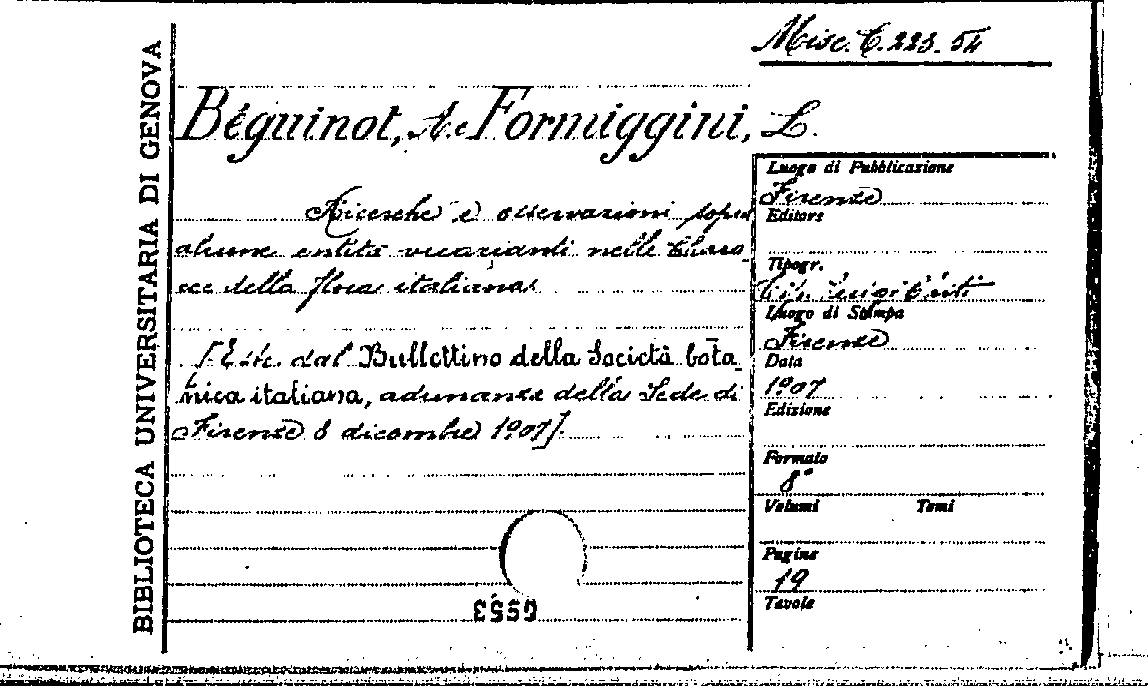 Misc. C. 223. 54
BIBLIOTECA UNIVERSITARIA DI GENOVA
Béguinot, A. e Formiggini, L.
Ricerche e osservazioni sopra
alcune entità vicarianti nelle
della flora italiana
[Estr. dal Bullettino della Società bota-
nica italiana, adunanza della Sede di
Firenze 8 dicembre 1907]
Luogo di Pubblicazione
Firenze
Editore
Tipogr.
Luogo di Stampa
Firenze
Data
1907
Edizione
Formato
8°
Volumi Tomi
Pagine
19
Tavole